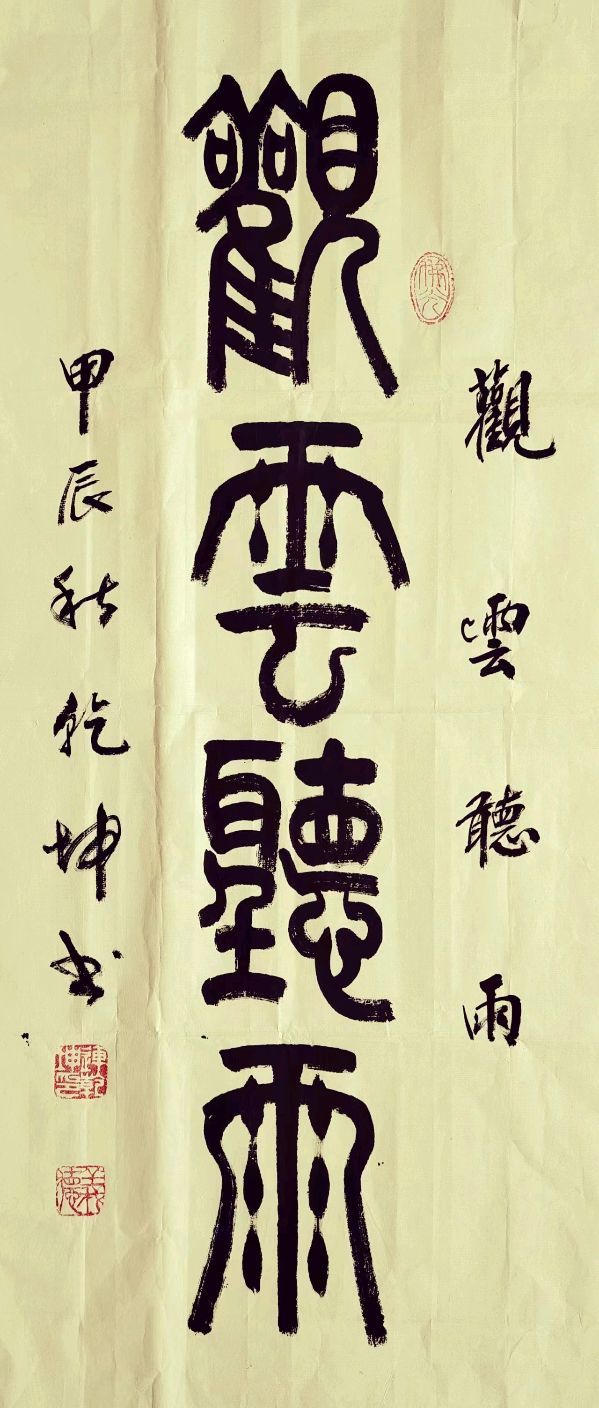 觀雲聽雨
觀雲聽雨
甲辰秋乾坤书
義德